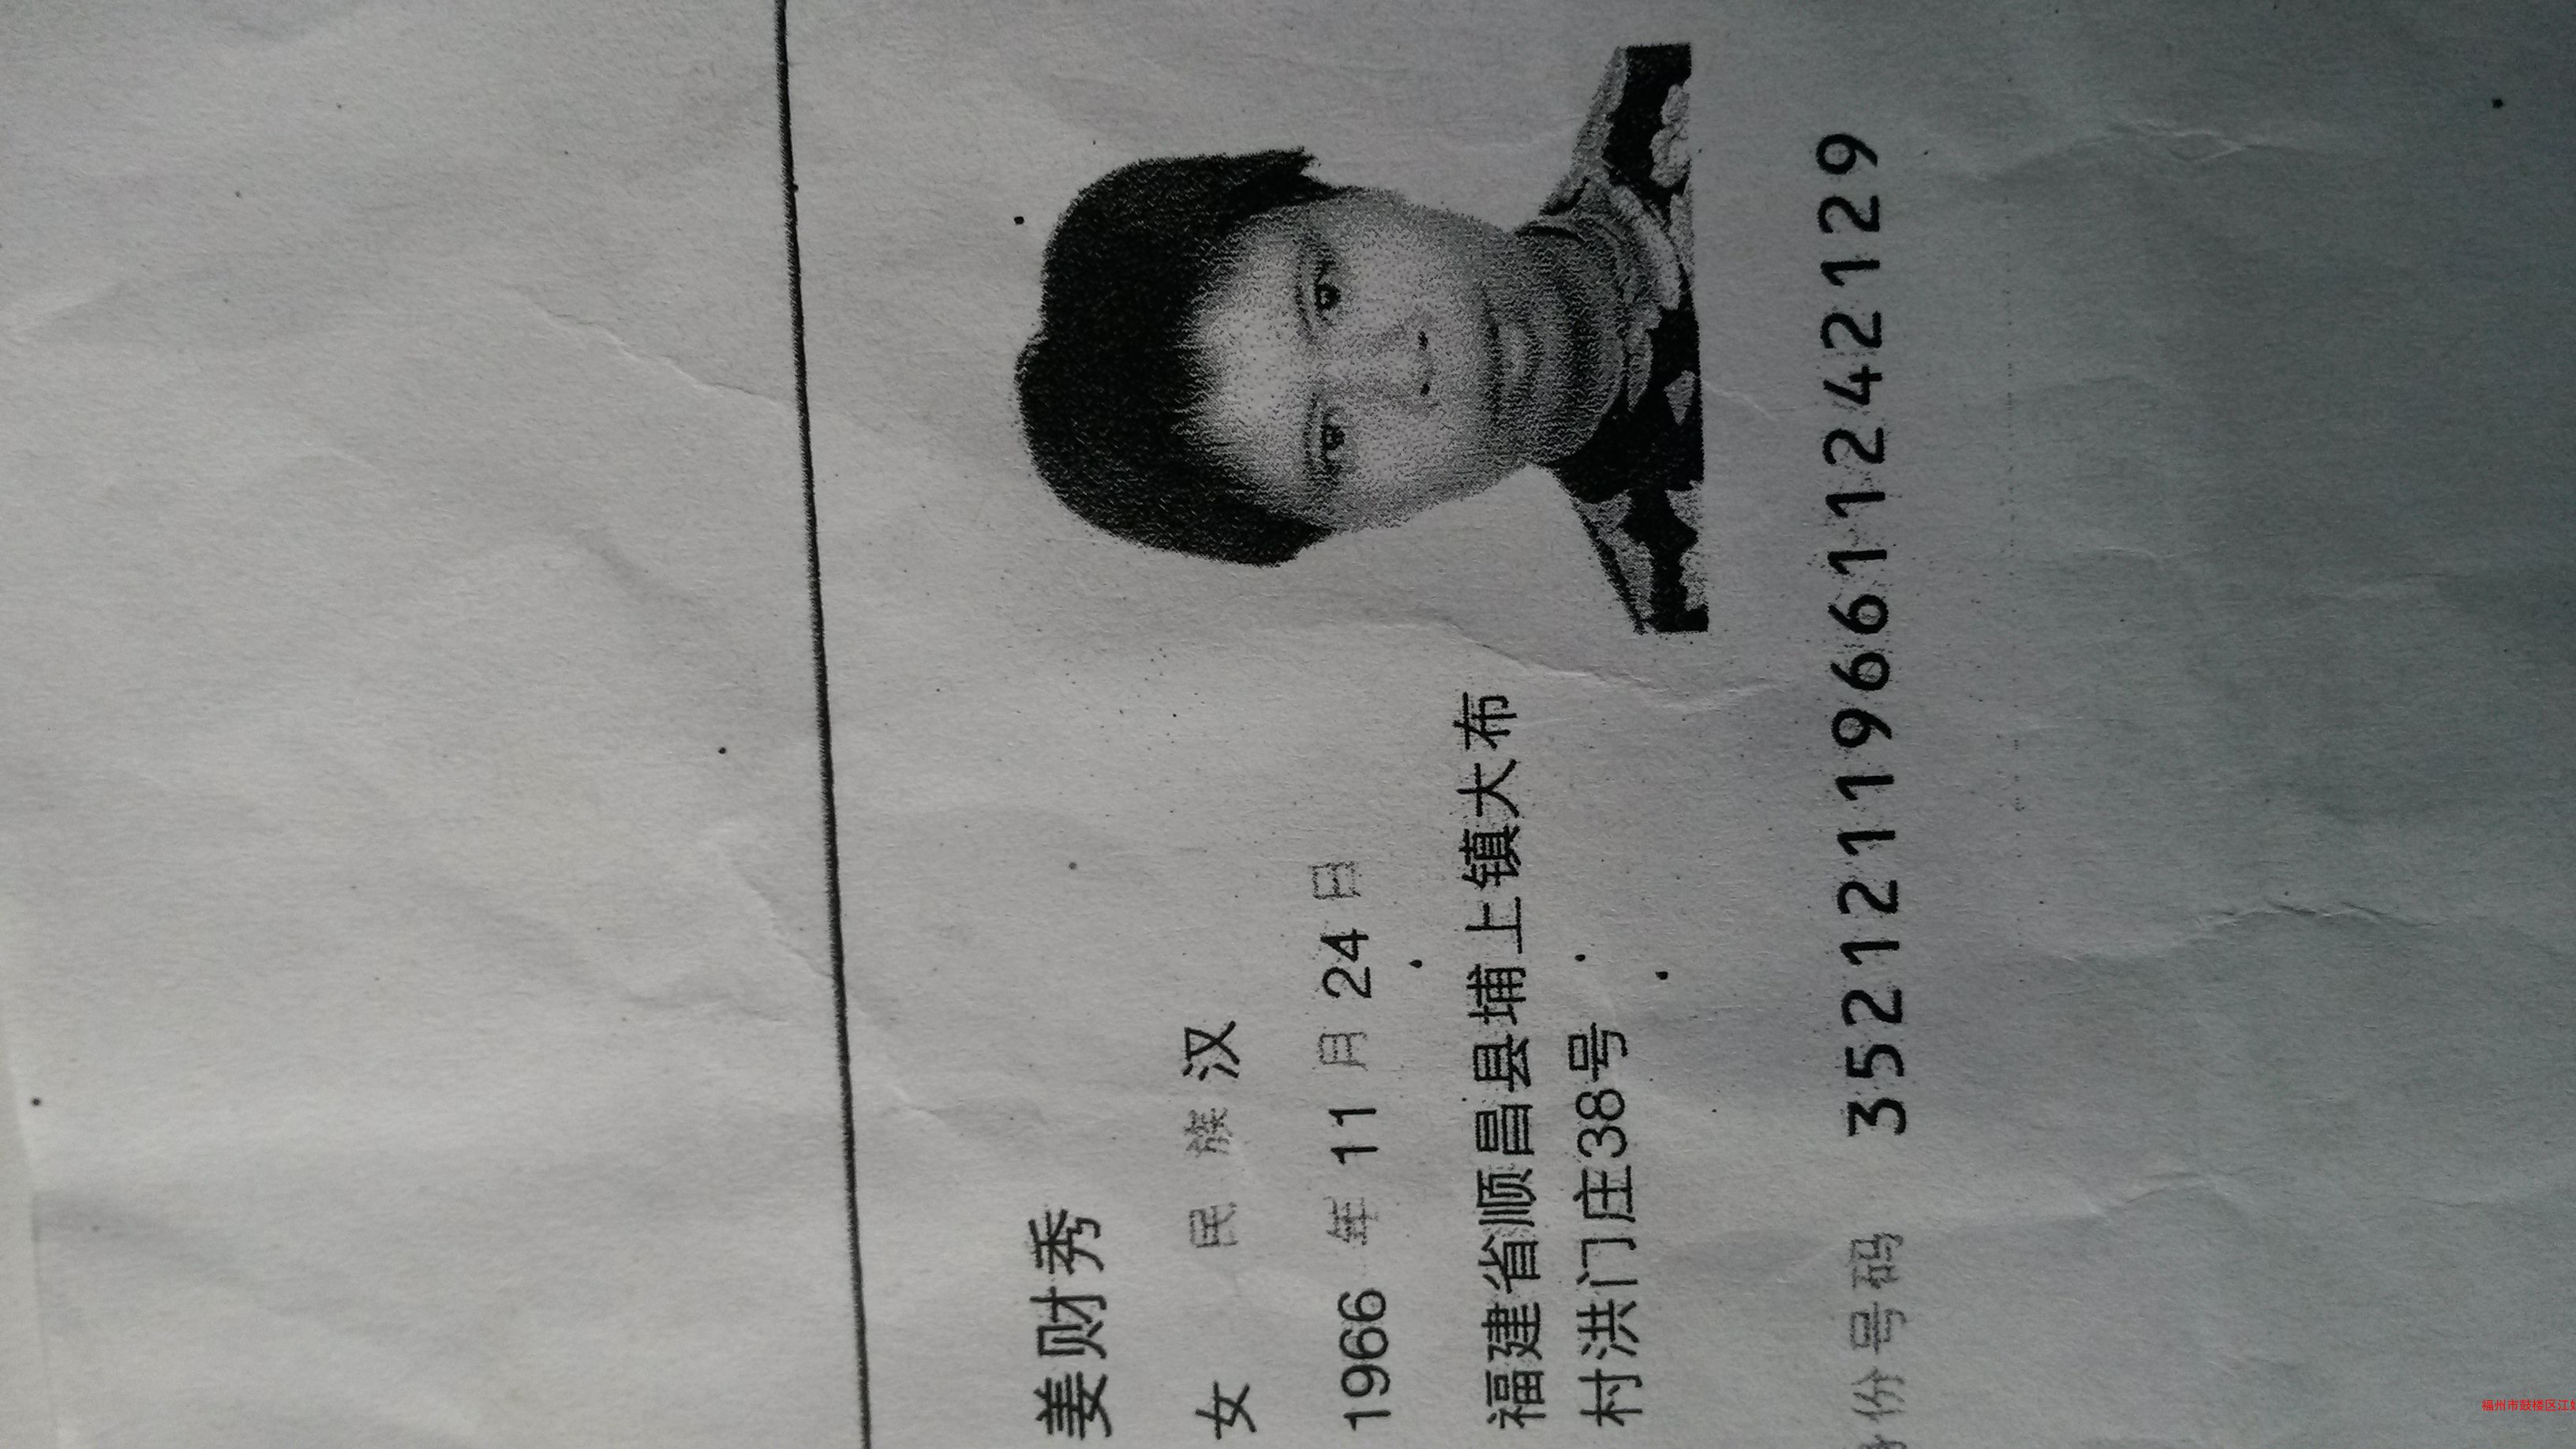 姜财秀
女 民族 汉
1966 年 11 月 24 日
福建省顺昌县埔上镇大布
村洪门庄38号
份号码 352121196611242129
福州市鼓楼区江